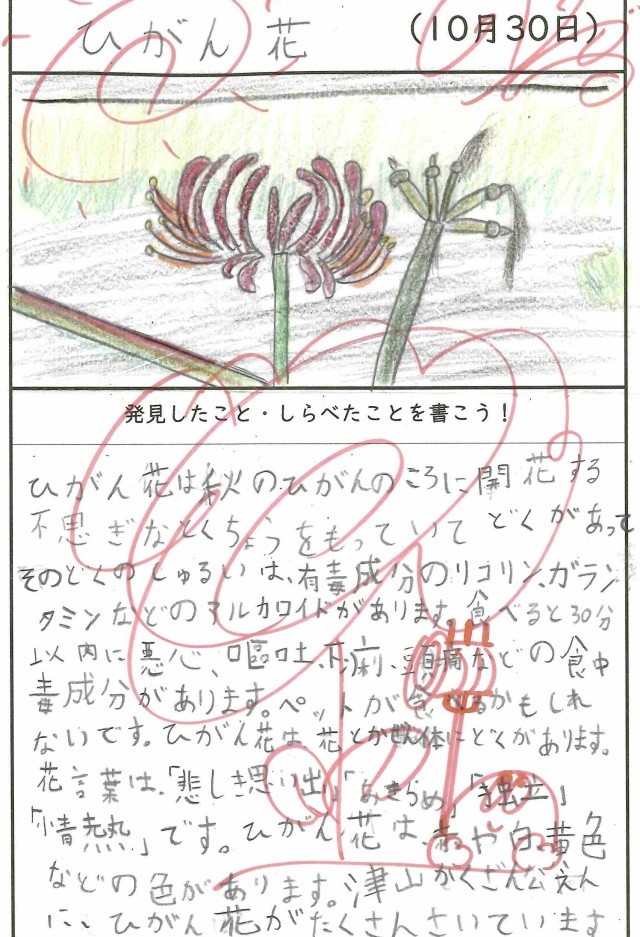 ひがん花
(10月30日)
発見したこと・しらべたことを書こう！
ひがん花は秋のひがんのころに開花する
不思ぎなとくちょうをもっていて どくがあって
そのどくのしゅるいは、有毒成分のリコリン、ガラン
タミンなどのアルカロイドがあります。食べると30分
以内に悪心、嘔吐、下痢、頭痛などの食中
毒成分があります。ペットが食べるかもしれ
ないです。ひがん花は花とかぜん体にどくがあります。
花言葉は、「悲しき思い出」「あきらめ」「独立」
「情熱」です。ひがん花は赤や白黄色
などの色があります。津山かくざん公えん
に、ひがん花がたくさんさいています